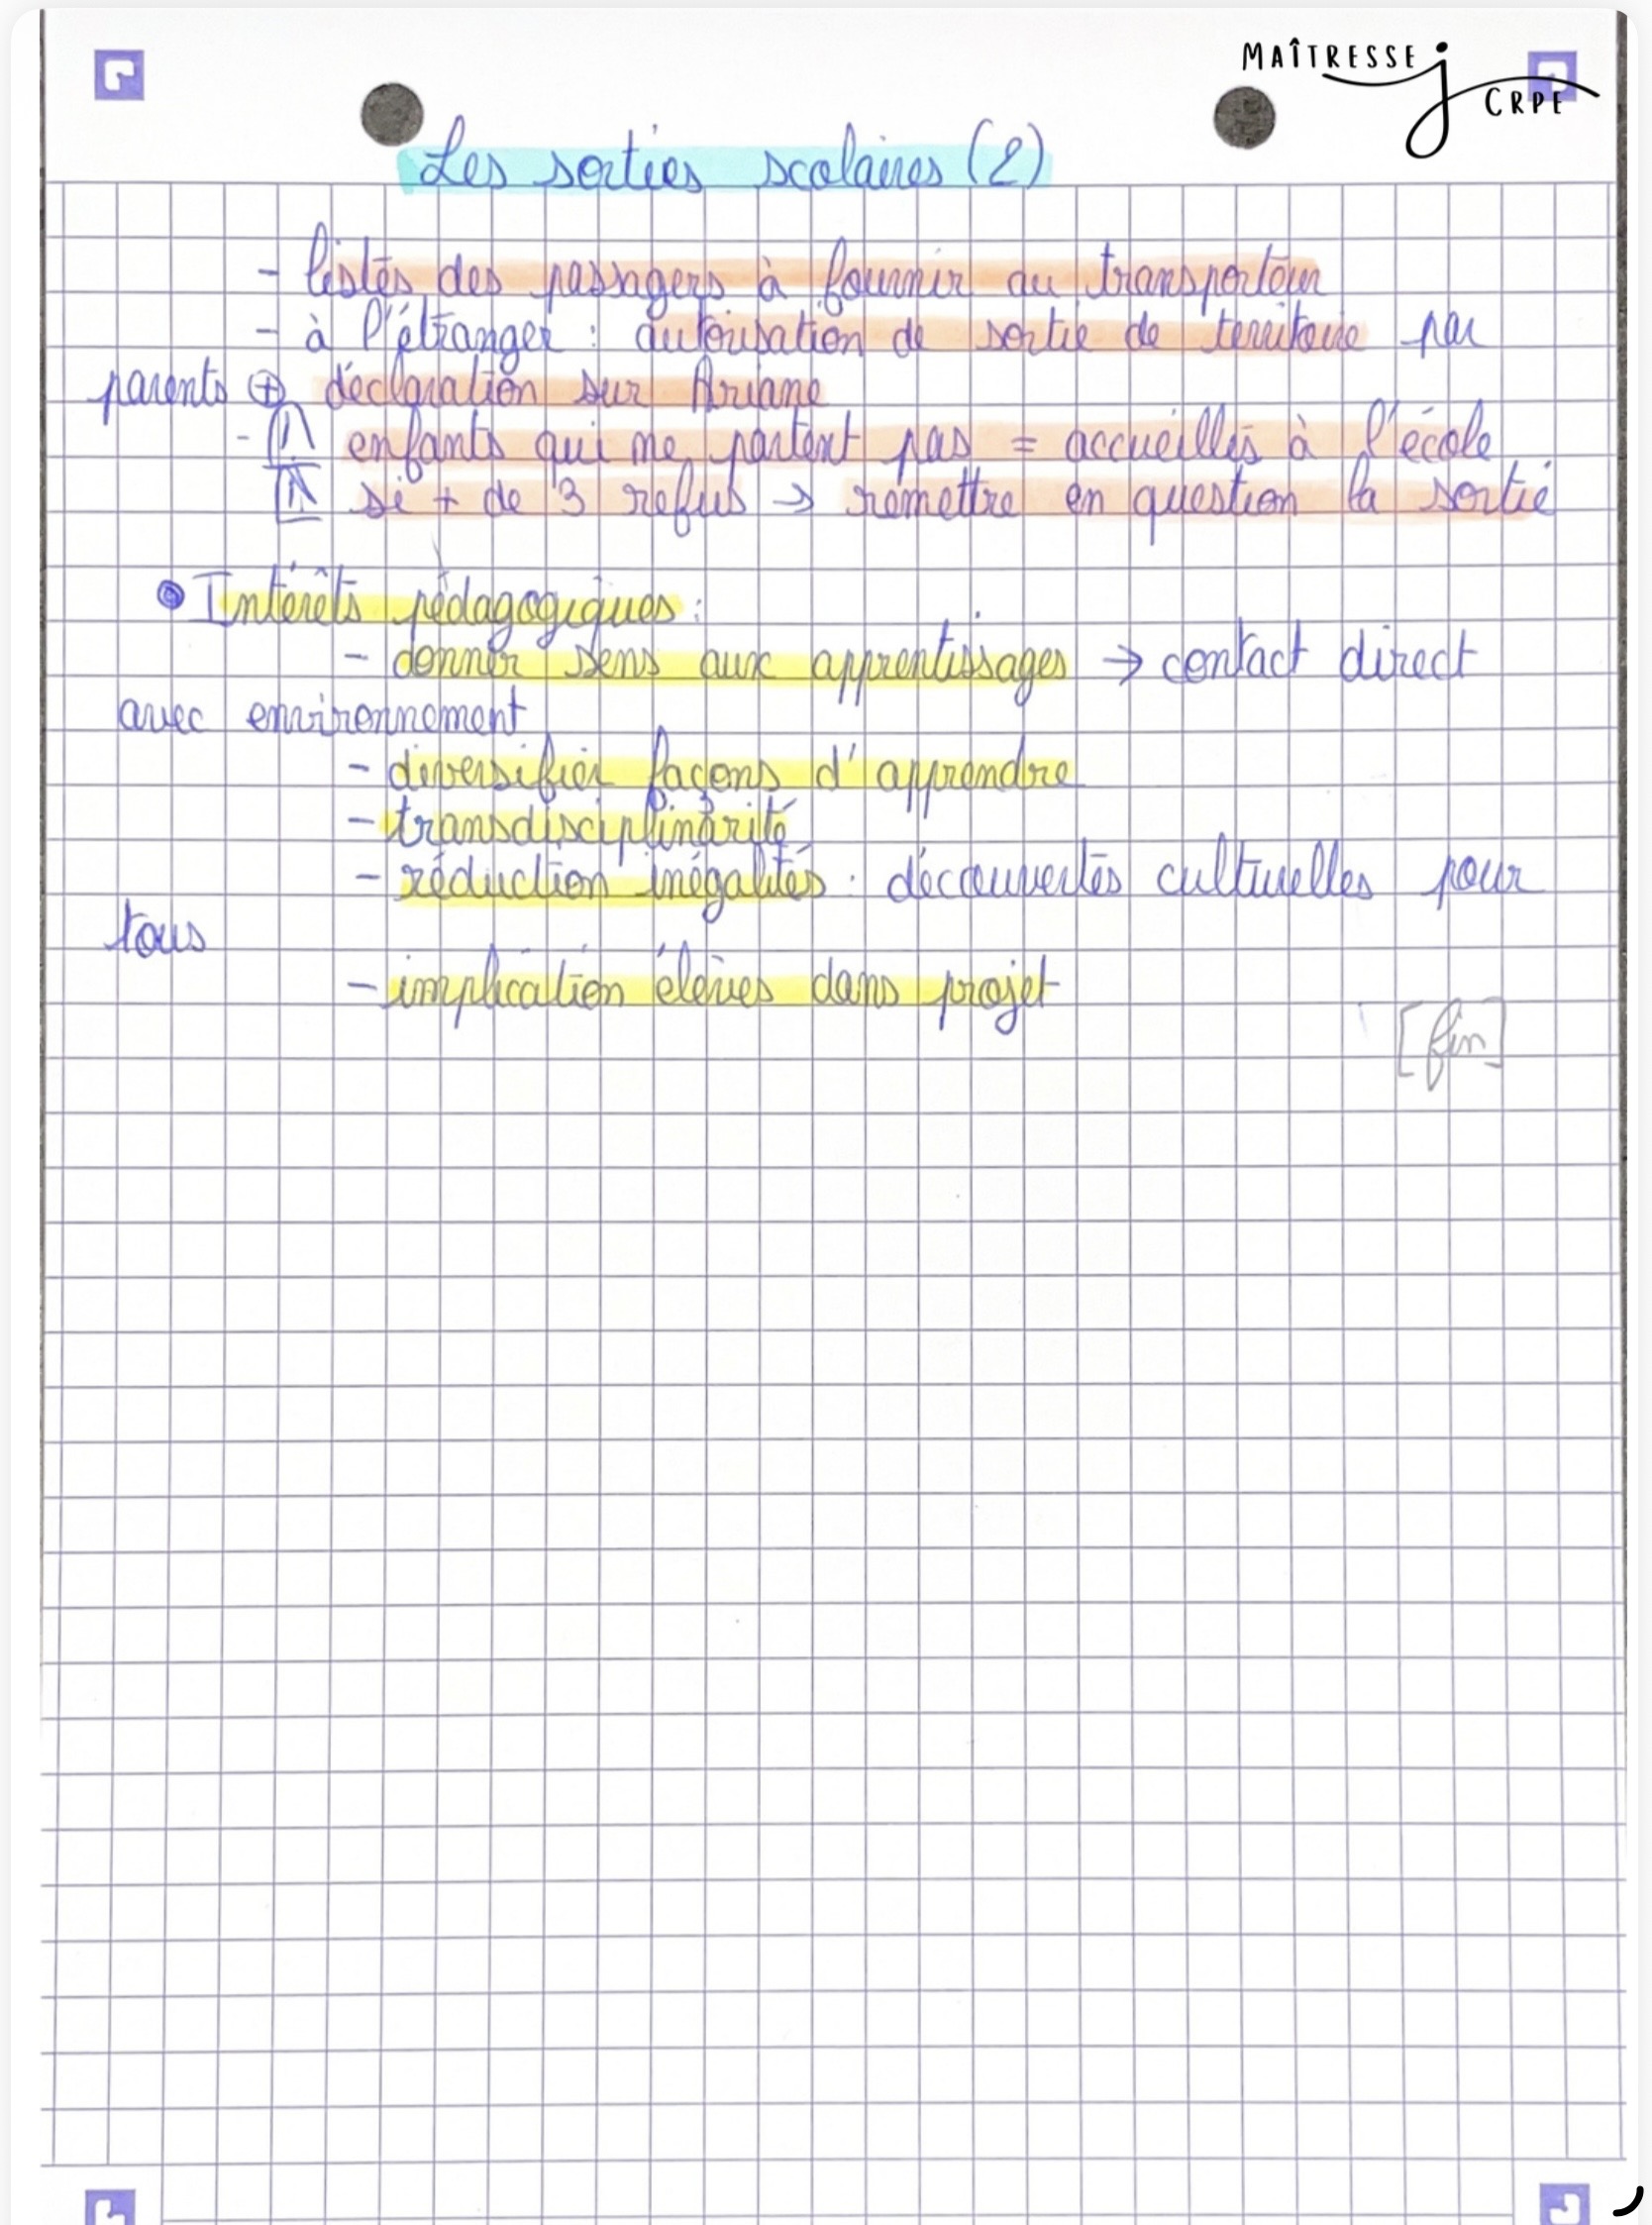 MAÎTRESSE J CRPE
Les sorties scolaires (2)
- listes des passagers à fournir au transporteur
- à l'étranger : autorisation de sortie de territoire par
parents ⊕ déclaration sur Ariane
- ⚠ enfants qui ne partent pas = accueillis à l'école
⚠ si + de 3 refus → remettre en question la sortie
• Intérêts pédagogiques :
- donner sens aux apprentissages → contact direct
avec environnement
- diversifier façons d'apprendre
- transdisciplinarité
- réduction inégalités : découvertes culturelles pour
tous
- implication élèves dans projet
[fin]